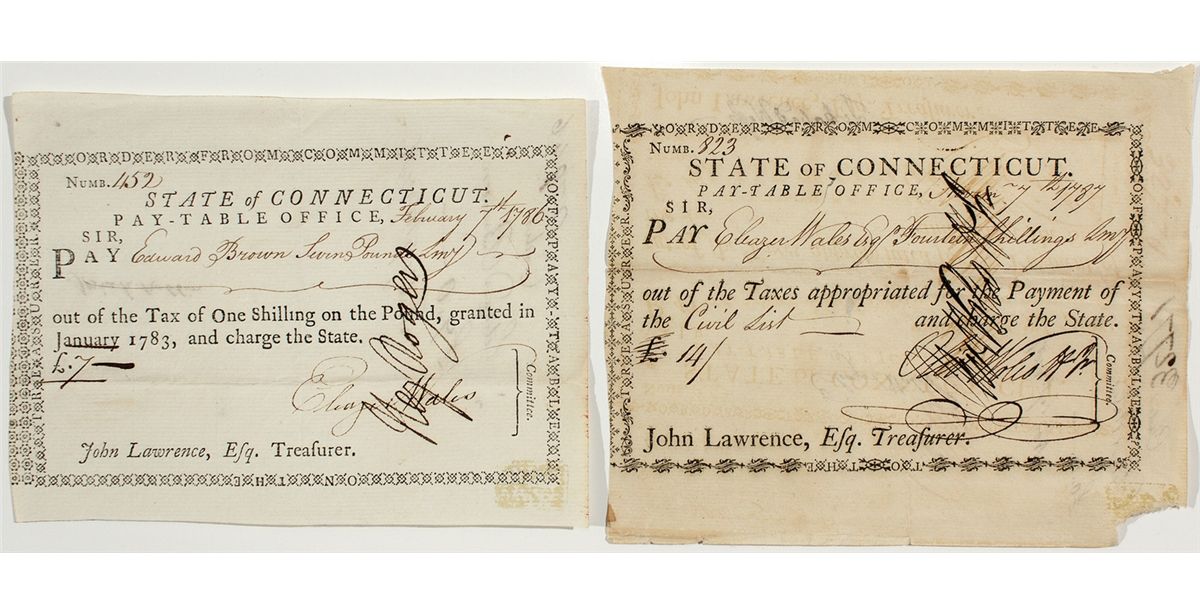 ORDER FROM COMMITTEE
OF PAY-TABLE
ON THE
TREASURER
NUMB. 452
STATE of CONNECTICUT.
PAY-TABLE OFFICE, February 7th 1786
SIR,
PAY Edward Brown Seven Pounds Lmy
out of the Tax of One Shilling on the Pound, granted in
January 1783, and charge the State.
£.7
Eleazer Wales
Committee.
John Lawrence, Eſq. Treaſurer.
ORDER FROM COMMITTEE
OF PAY TABLE
TO THE
TREASURER
NUMB. 823
STATE OF CONNECTICUT.
PAY-TABLE OFFICE, 7th 1787
SIR,
PAY Eleazer Wales Esqr Fourteen Shillings Lmy
out of the Taxes appropriated for the Payment of
the Civil List and charge the State.
£. 14/
Wales
Committee.
John Lawrence, Eſq. Treaſurer.